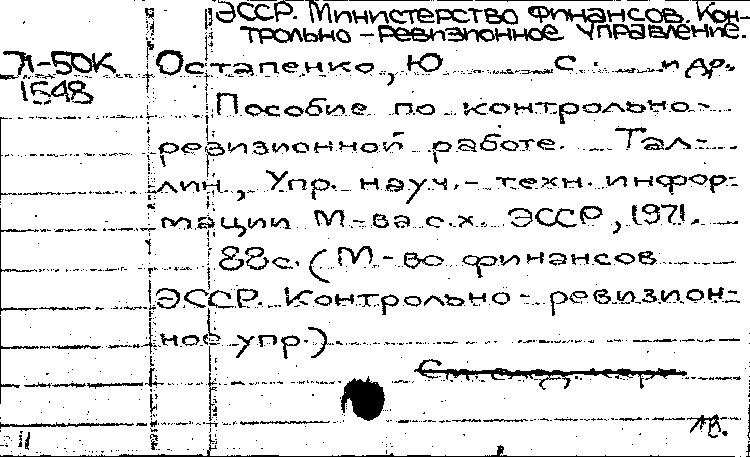 ЭССР. Министерство финансов. Кон-
трольно-ревизионное управление.
Л-50К Остапенко, Ю С. и др.
1548
Пособие по контрольно-
ревизионной работе. Тал-
лин, Упр. науч.-техн. инфор-
мации М-ва с.х. ЭССР, 1971.
88с. (М-во финансов
ЭССР. Контрольно-ревизион-
ное упр.).
См. алф. карт
11